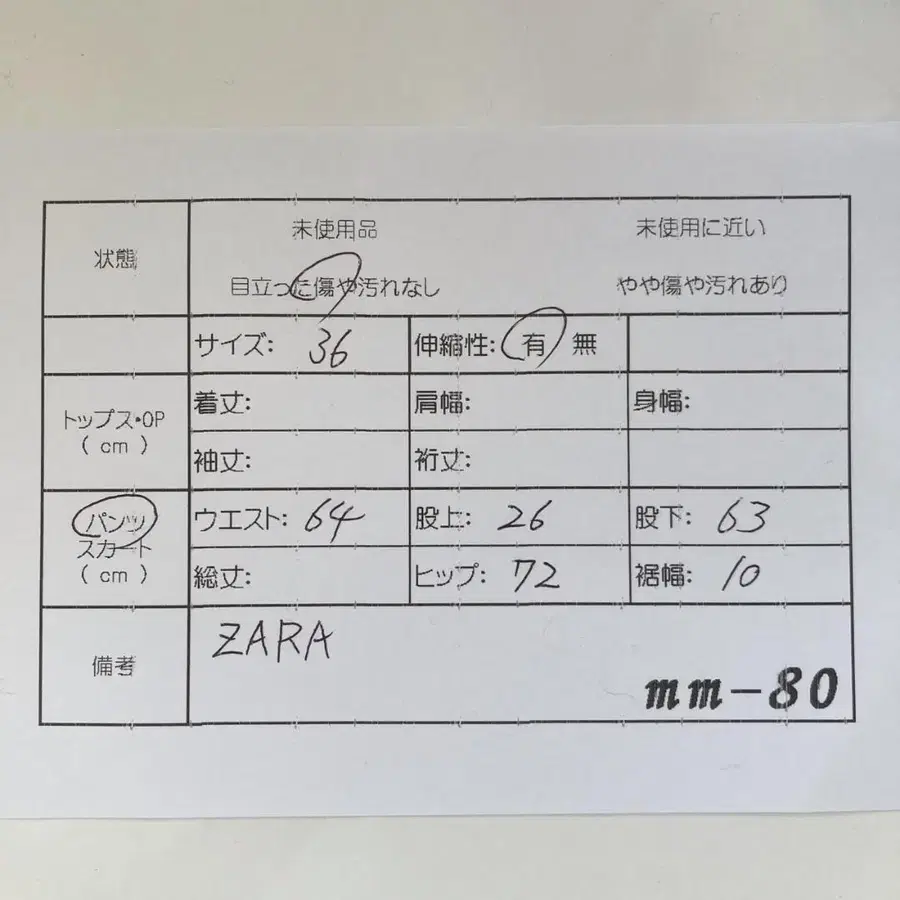 状態
未使用品 未使用に近い
目立った傷や汚れなし やや傷や汚れあり
サイズ: 36 伸縮性: 有 無
トップス・OP
( cm )
着丈: 肩幅: 身幅:
袖丈: 裄丈:
パンツ
スカート
( cm )
ウエスト: 64 股上: 26 股下: 63
総丈: ヒップ: 72 裾幅: 10
備考
ZARA
mm-80